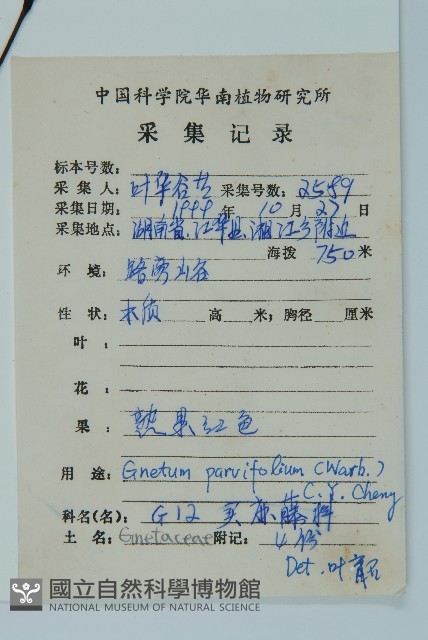 中国科学院华南植物研究所
采集记录
标本号数:
采集人: 叶华谷等 采集号数: 2559
采集日期: 1999 年 10 月 27 日
采集地点: 湖南省.江华县.湘江乡附近
海拨 750 米
环境: 路旁山谷
性状: 木质 高 米; 胸径 厘米
叶:
花:
果: 熟果红色
用途: Gnetum parvifolium (Warb.)
C.Y. Cheng
科名(名): G12 买麻藤科
土名: Gnetaceae 附记: 4份
Det. 叶育石
國立自然科學博物館
NATIONAL MUSEUM OF NATURAL SCIENCE